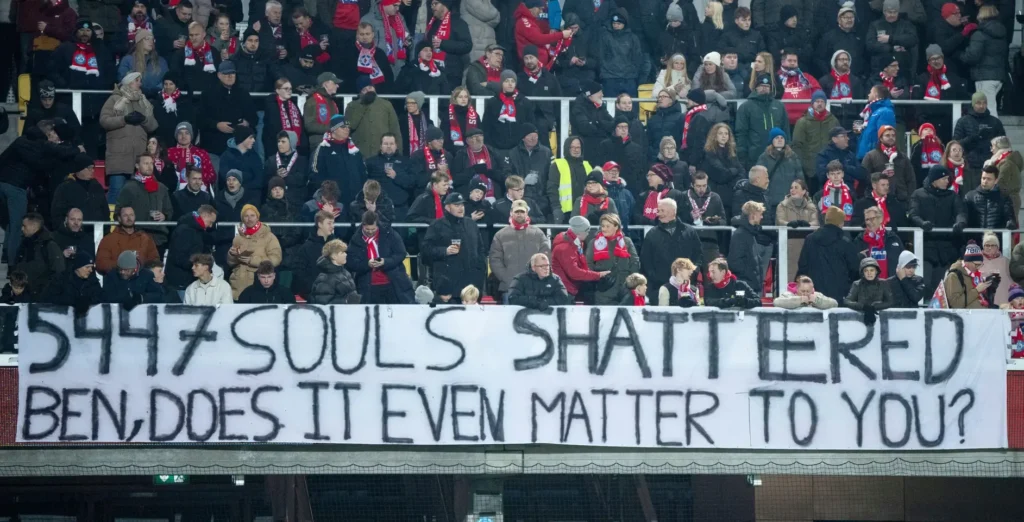 5447 SOULS SHATTERED
BEN, DOES IT EVEN MATTER TO YOU?